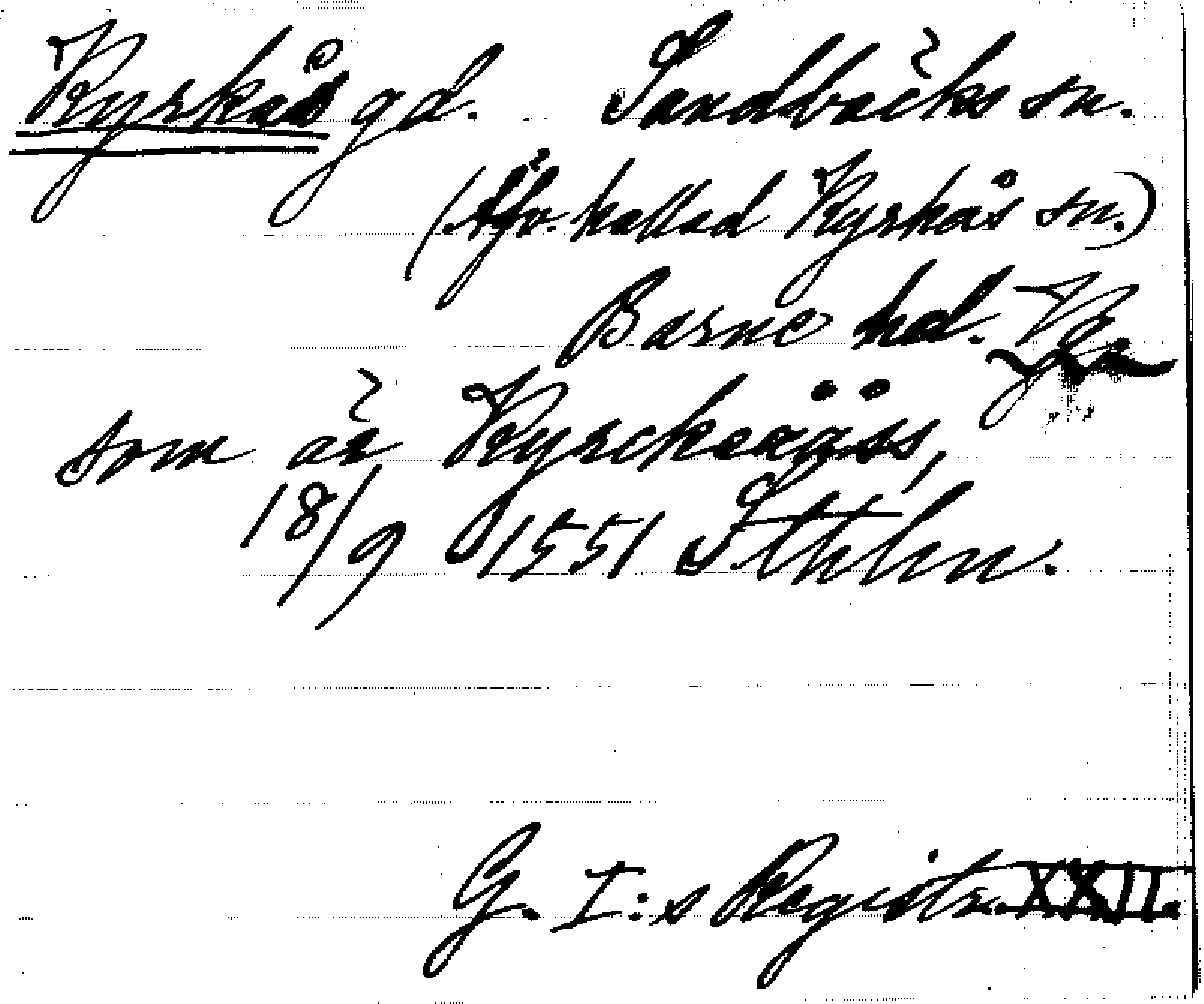 Kyrkås gd. Landbäcks sn.
(Äfv. kallad Kyrkås sn.)
Barne hd. Vg
som är Kyrckeråss,
18/9 1551 Sthlm.
G. I:s Registr. XXII.